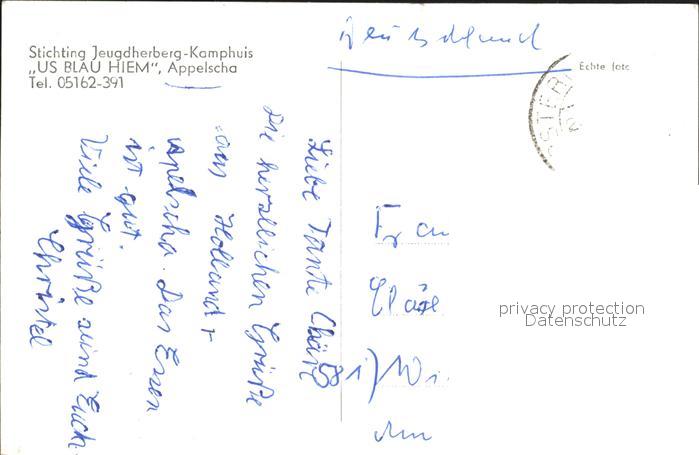 Stichting Jeugdherberg-Kamphuis
„US BLAU HIEM", Appelscha
Tel. 05162-391
Deutschland
Echte foto
Liebe Tante Cläre
Die herzlichen Grüße
aus Holland +
Apelscha. Das Essen
ist gut.
Viele Grüße sind Euch
Christel
Frau
Cläre
581) Wi
privacy protection
Datenschutz